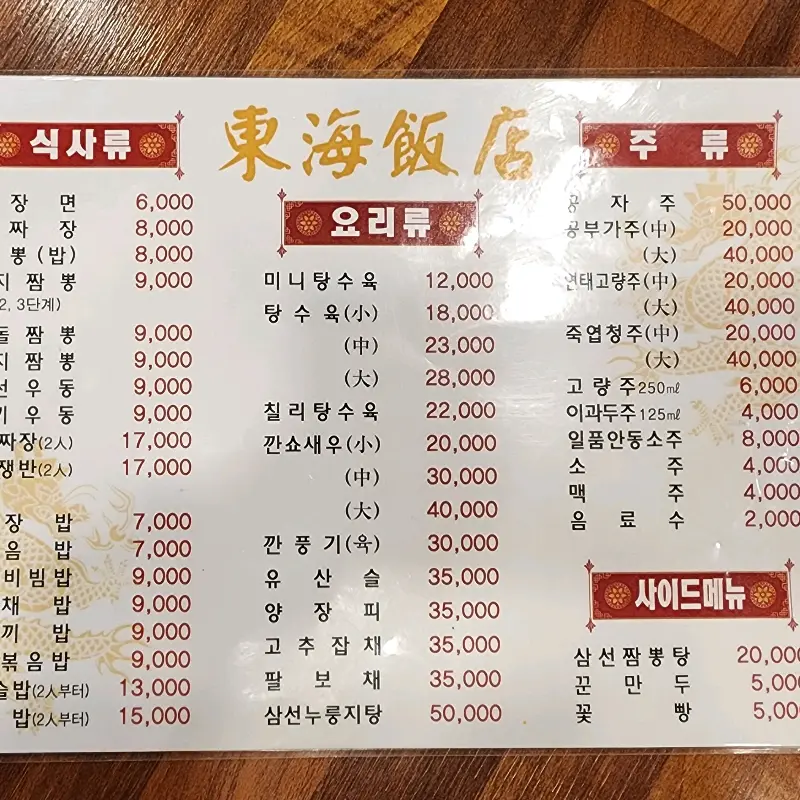 東海飯店
식사류
장면 6,000
짜장 8,000
뽕(밥) 8,000
지짬뽕 9,000
2, 3단계)
돌짬뽕 9,000
지짬뽕 9,000
선우동 9,000
기우동 9,000
짜장(2人) 17,000
쟁반(2人) 17,000
장밥 7,000
음밥 7,000
비빔밥 9,000
채밥 9,000
끼밥 9,000
볶음밥 9,000
슬밥(2人부터) 13,000
밥(2人부터) 15,000
요리류
미니탕수육 12,000
탕수육(小) 18,000
(中) 23,000
(大) 28,000
칠리탕수육 22,000
깐쇼새우(小) 20,000
(中) 30,000
(大) 40,000
깐풍기(육) 30,000
유산슬 35,000
양장피 35,000
고추잡채 35,000
팔보채 35,000
삼선누룽지탕 50,000
주류
공자주 50,000
공부가주(中) 20,000
(大) 40,000
연태고량주(中) 20,000
(大) 40,000
죽엽청주(中) 20,000
(大) 40,000
고량주250㎖ 6,000
이과두주125㎖ 4,000
일품안동소주 8,000
소주 4,000
맥주 4,000
음료수 2,000
사이드메뉴
삼선짬뽕탕 20,000
꾼만두 5,000
꽃빵 5,000